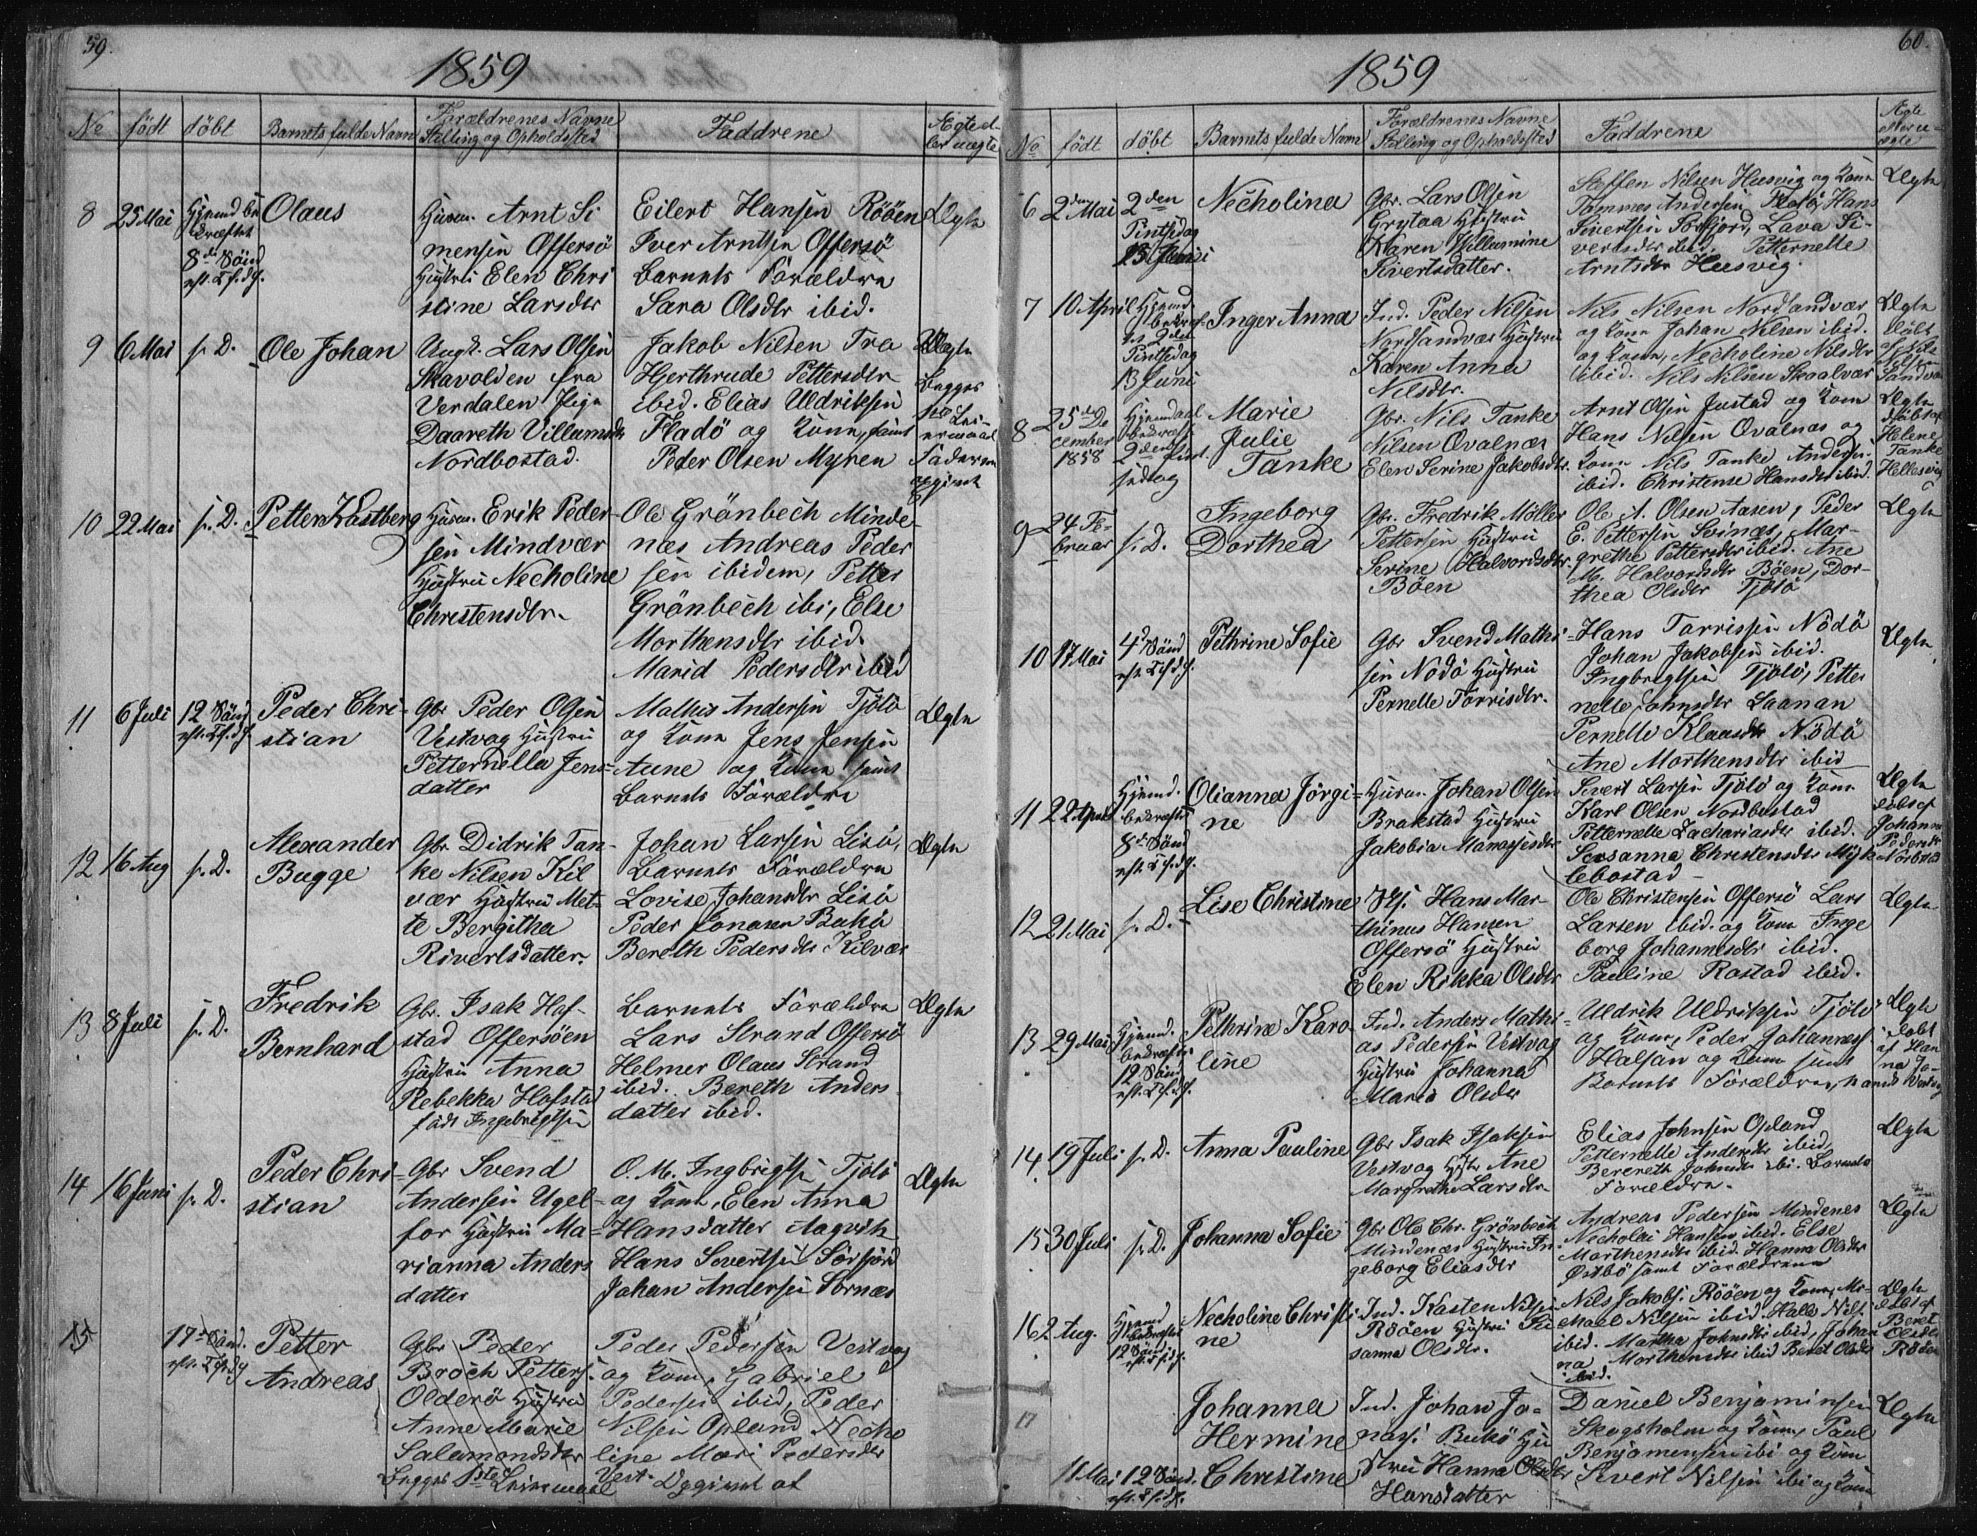 59.
1859
No
født
døbt
Barnets fulde Navn
Forældrenes Navne
Stilling og Opholdssted
Faddrene
Ægte el-
ler uægte
8
25 Mai
Hjemd be
kræftet
8de Sønd
eft. Tr.
Olaus
Huusm. Arnt Si
mensen Offersø
Hustru Elen Chri
stine Larsdtr
Eilert Hansen Røöen
Iver Arntsen Offersö
Barnets Forældre
Sara Olsdtr ibid.
Ægte
9
6 Mai
s. D.
Ole Johan
Ungk. Lars Olsen
Skavolden fra
Verdalen Pige
Daareth Villumsdtr
Nordbostad.
Jakob Nilsen Fra
Hjerthrude Pettersdtr
ibid. Elias Uldriksen
Fladö og Kone, samt
Peder Olsen Myren
Uægte
Begges
Lei-
ermaal
Faderen
10
22 Mai
s. D.
Petter Kastberg
Huusm. Erik Peder-
sen Mindvær
Hustru Necholine
Christensdtr
Ole Grönbech Minde-
nes Andreas Peder
sen ibidem, Petter
Grönbech ibi, Else
Morthensdtr ibid.
Marid Pedersdtr ibid
11
6 Juli
12 Sönd
eft. Tr.
Peder Chri-
stian
Gbr Peder Olsen
Vestvog Hustru
Petternella Jens-
datter
Mathis Andersen Tjötö
og Kone Jens Jensen
Aune og Kone samt
Barnets Forældre
Ægte
12
16 Aug
s. D.
Alexander
Bugge
Gbr. Didrik Tan-
ke Nilsen Kil
vær Hustru Met-
te Bergitha
Rivertsdatter.
Johan Larsen Lisö,
Barnets Forældre
Lovise Johansdtr Lisö
Peder Jonasen Bukö
Bereth Pedersdtr Kilvær
Ægte
13
8 Juli
s. D.
Fredrik
Bernhard
Gbr. Isak Hof-
stad Offersöen
Hustru Anna
Rebekka Hofstad
født Ingebrigtsen
Barnets Forældre
Lars Strand Offersö
Helmer Olaus Strand
ibid. Bereth Anders-
datter ibid.
Ægte
14
16 Juni
s. D.
Peder Chri-
stian
Gbr Svend
Andersen Ugel-
for Hustru Ma-
rianna Anders
datter
O. M. Ingbrigtsen Tjötö
og Kone, Elen Anna
Hansdatter Aagvik
Hans Sivertsen Sörfjord
Johan Andersen Sörnes
Ægte
15
17de Sönd.
eft. Tr.
Petter
Andreas
Gbr Peder
Broch Petters.
Olderö Hustru
Anne Marie
Salamonsdtr
Begges 1ste Leiermaal
Peder Pedersen Vestvog
og Kone, Gabriel
Pedersen ibid, Peder
Nilsen Opland Necho
line Mari Pedersdtr
Vest-
60.
1859
No
født
döbt
Barnets fulde Navn
Forældrenes Navne
Stilling og Opholdssted
Faddrene
Ægte
eller u-
ægte
6
2den Mai
2den
Pintsedag
13 Juni
Necholina
Gbr. Lars Olsen
Grytaa Hustru
Karen Willumine
Sivertsdatter.
Steffen Nilsen Husvig og Kone
Tommes Andersen, Flatö, Hans
Sivertsen Sörfjord, Lava Si-
vertsdtr ibid. Petternelle
Arntsdtr Husvig.
Ægte
7
10 April
Hjemd.
bekræf-
tet 2den
Pintsedag
13 Juni
Inger Anna
Ind. Peder Nilsen
Nordsandvær Hustru
Karen Anna
Nilsdtr.
Nils Nilsen Nordsandvær
og Kone Johan Nilsen ibid.
og Kone, Necholine Nilsdtr
ibid. Nils Nilsen Skaalvær
Ægte
döbt
af Nils
Nilsen
Sandvær
8
25de De
cember
1858
Hjemdøbt
bekræft
2den Pint-
sedag
Marie
Julie
Tanke
Gbr. Nils Tanke
Nilsen Qvalnæs
Elen Serine Jakobsdtr.
Arnt Olsen Justad og Kone
Hans Nilsen Qvalnæs og
Kone Nils Tanke Anders.
ibid. Christense Hansdtr ibid.
Ægte
döbt af
Helene
Tanke
Hellesvig
9
24 Fe-
bruar
s. D.
Ingeborg
Dorthea
Gbr. Fredrik Møller
Pettersen Hustru
Serine Halvorsdtr.
Böen
Ole A. Olsen Aasen, Peder
E. Pettersen Svinæs, Mar-
grethe Pettersdtr ibid. Ane
M. Halvorsdtr Böen, Dor-
thea Olsdtr Tjötö
Ægte
10
17 Mai
4de Sönd
eft. Tr.
Pethrine Sofie
Gbr Svend Mathi-
sen Nödö Hustru
Pernelle Torrisdtr.
Hans Torrissen Nödö
Johan Jakobsen ibid.
Ingbrigtsen Tjötö, Petter
nelle Johnsdtr Laanan
Pernelle Klausdtr Nödö
Ane Morthensdtr ibid
Ægte
11
22 April
Hjemd.
bekræftet
8de Sönd
eft. Tr.
Olianna Jörgi-
ne
Huusm. Johan Olsen
Brakstad Hustru
Jakobia Manassisdtr
Sivert Larsen Tjötö og Kone
Karl Olsen Nordbostad
Petternelle Zachariasdtr ibid.
Susanna Christensdtr Myk-
lebostad
Ægte
döbt af
Johanna
Pedersdtr
12
21 Mai
s. D.
Lise Christine
Hans Mar-
thinus Hansen
Offersö Hustru
Elen Rikka Olsdtr
Ole Christensen Offersö Lars
Larsen ibid. og Kone Inge
borg Johannesdtr ibid.
Pauline Rostad ibid.
Ægte
13
29 Mai
Hjemd.
bekræftet
12 Sönd
eft. Tr.
Pethrine Karo-
line
Ind. Anders Mathi-
as Pedersen Vestvog
Hustru Johanna
Maria Olsdtr
Uldrik Uldriksen Tjötö
og Kone, Peder Johannes
Halsan og Kone samt
Barnets Forældre,
Ægte
döbt
af Han
na Jo-
hans Vestvog
14
19 Juli
s. D.
Anna Pauline
Gbr Isak Isaksen
Vestvog Hustr Ane
Margrethe Larsdtr
Elias Johnsen Opland
Petternelle Andersdtr ibid
Berereth Johnsdtr ibi. Barnets
Forældre.
Ægte
15
30 Juli
s. D.
Johanna Sofie
Gbr Ole Chr. Grönbech
Mindenes Hustru In-
geborg Eliasdtr
Andreas Pedersen Mindenes
Necholai Hansen ibid. Else
Morthensdtr ibid. Hanna Olsdtr
Østbö samt Forældrene
Ægte
16
2 Aug.
Hjemd
bekræftet
12 Sönd
eft. Tr.
Necholine Christi
ne
Ind. Kasten Nilsen
Røöen Hustru Su
sanna Olsdtr.
Nils Jakobs. Rööen og Kone, Mi-
kael Nilsen ibid. Halle Nils.
ibid. Martha Johnsdtr ibid, Johan
na Morthensdtr ibid Beret Olsdtr
ibid.
Ægte
döbt af
Beret
Olsdtr
Röön
17
18 Mai
12 Sönd.
eft. Tr.
Johanna
Hermine
Christine
Ind. Johan Jo-
nas. Bukö Hu
stru Hanna Olsdtr
Hansdatter
Daniel Benjaminsen
Skogsholm og Kone, Paul
Benjamensen ibi og Kone
Sivert Nilsen ibi og Kone
Ægte